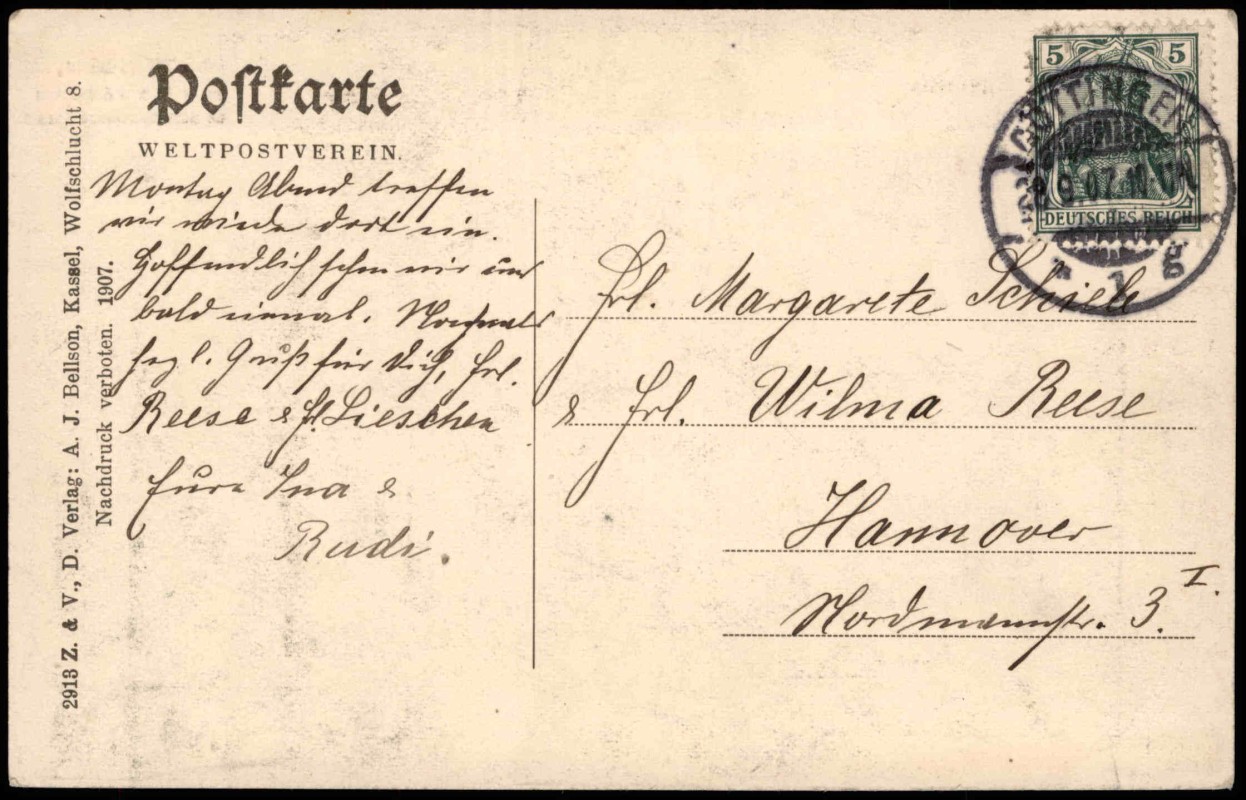 Postkarte
WELTPOSTVEREIN.
Montag Abend treffen
wir wieder dort ein.
Hoffendlich sehen wir uns
bald einmal. Nochmals
hzl. Gruß für Dich, Frl.
Reese & Frl. Lieschen
Eure Ina &
Rudi.
2913 Z. & V., D. Verlag: A. J. Bellson, Kassel, Wolfschlucht 8.
Nachdruck verboten. 1907.
5 5
DEUTSCHES REICH
GÖTTINGEN
9.07.10
* 1
Frl. Margarete Schiele
& Frl. Wilma Reese
Hannover
Nordmannstr. 3. I.